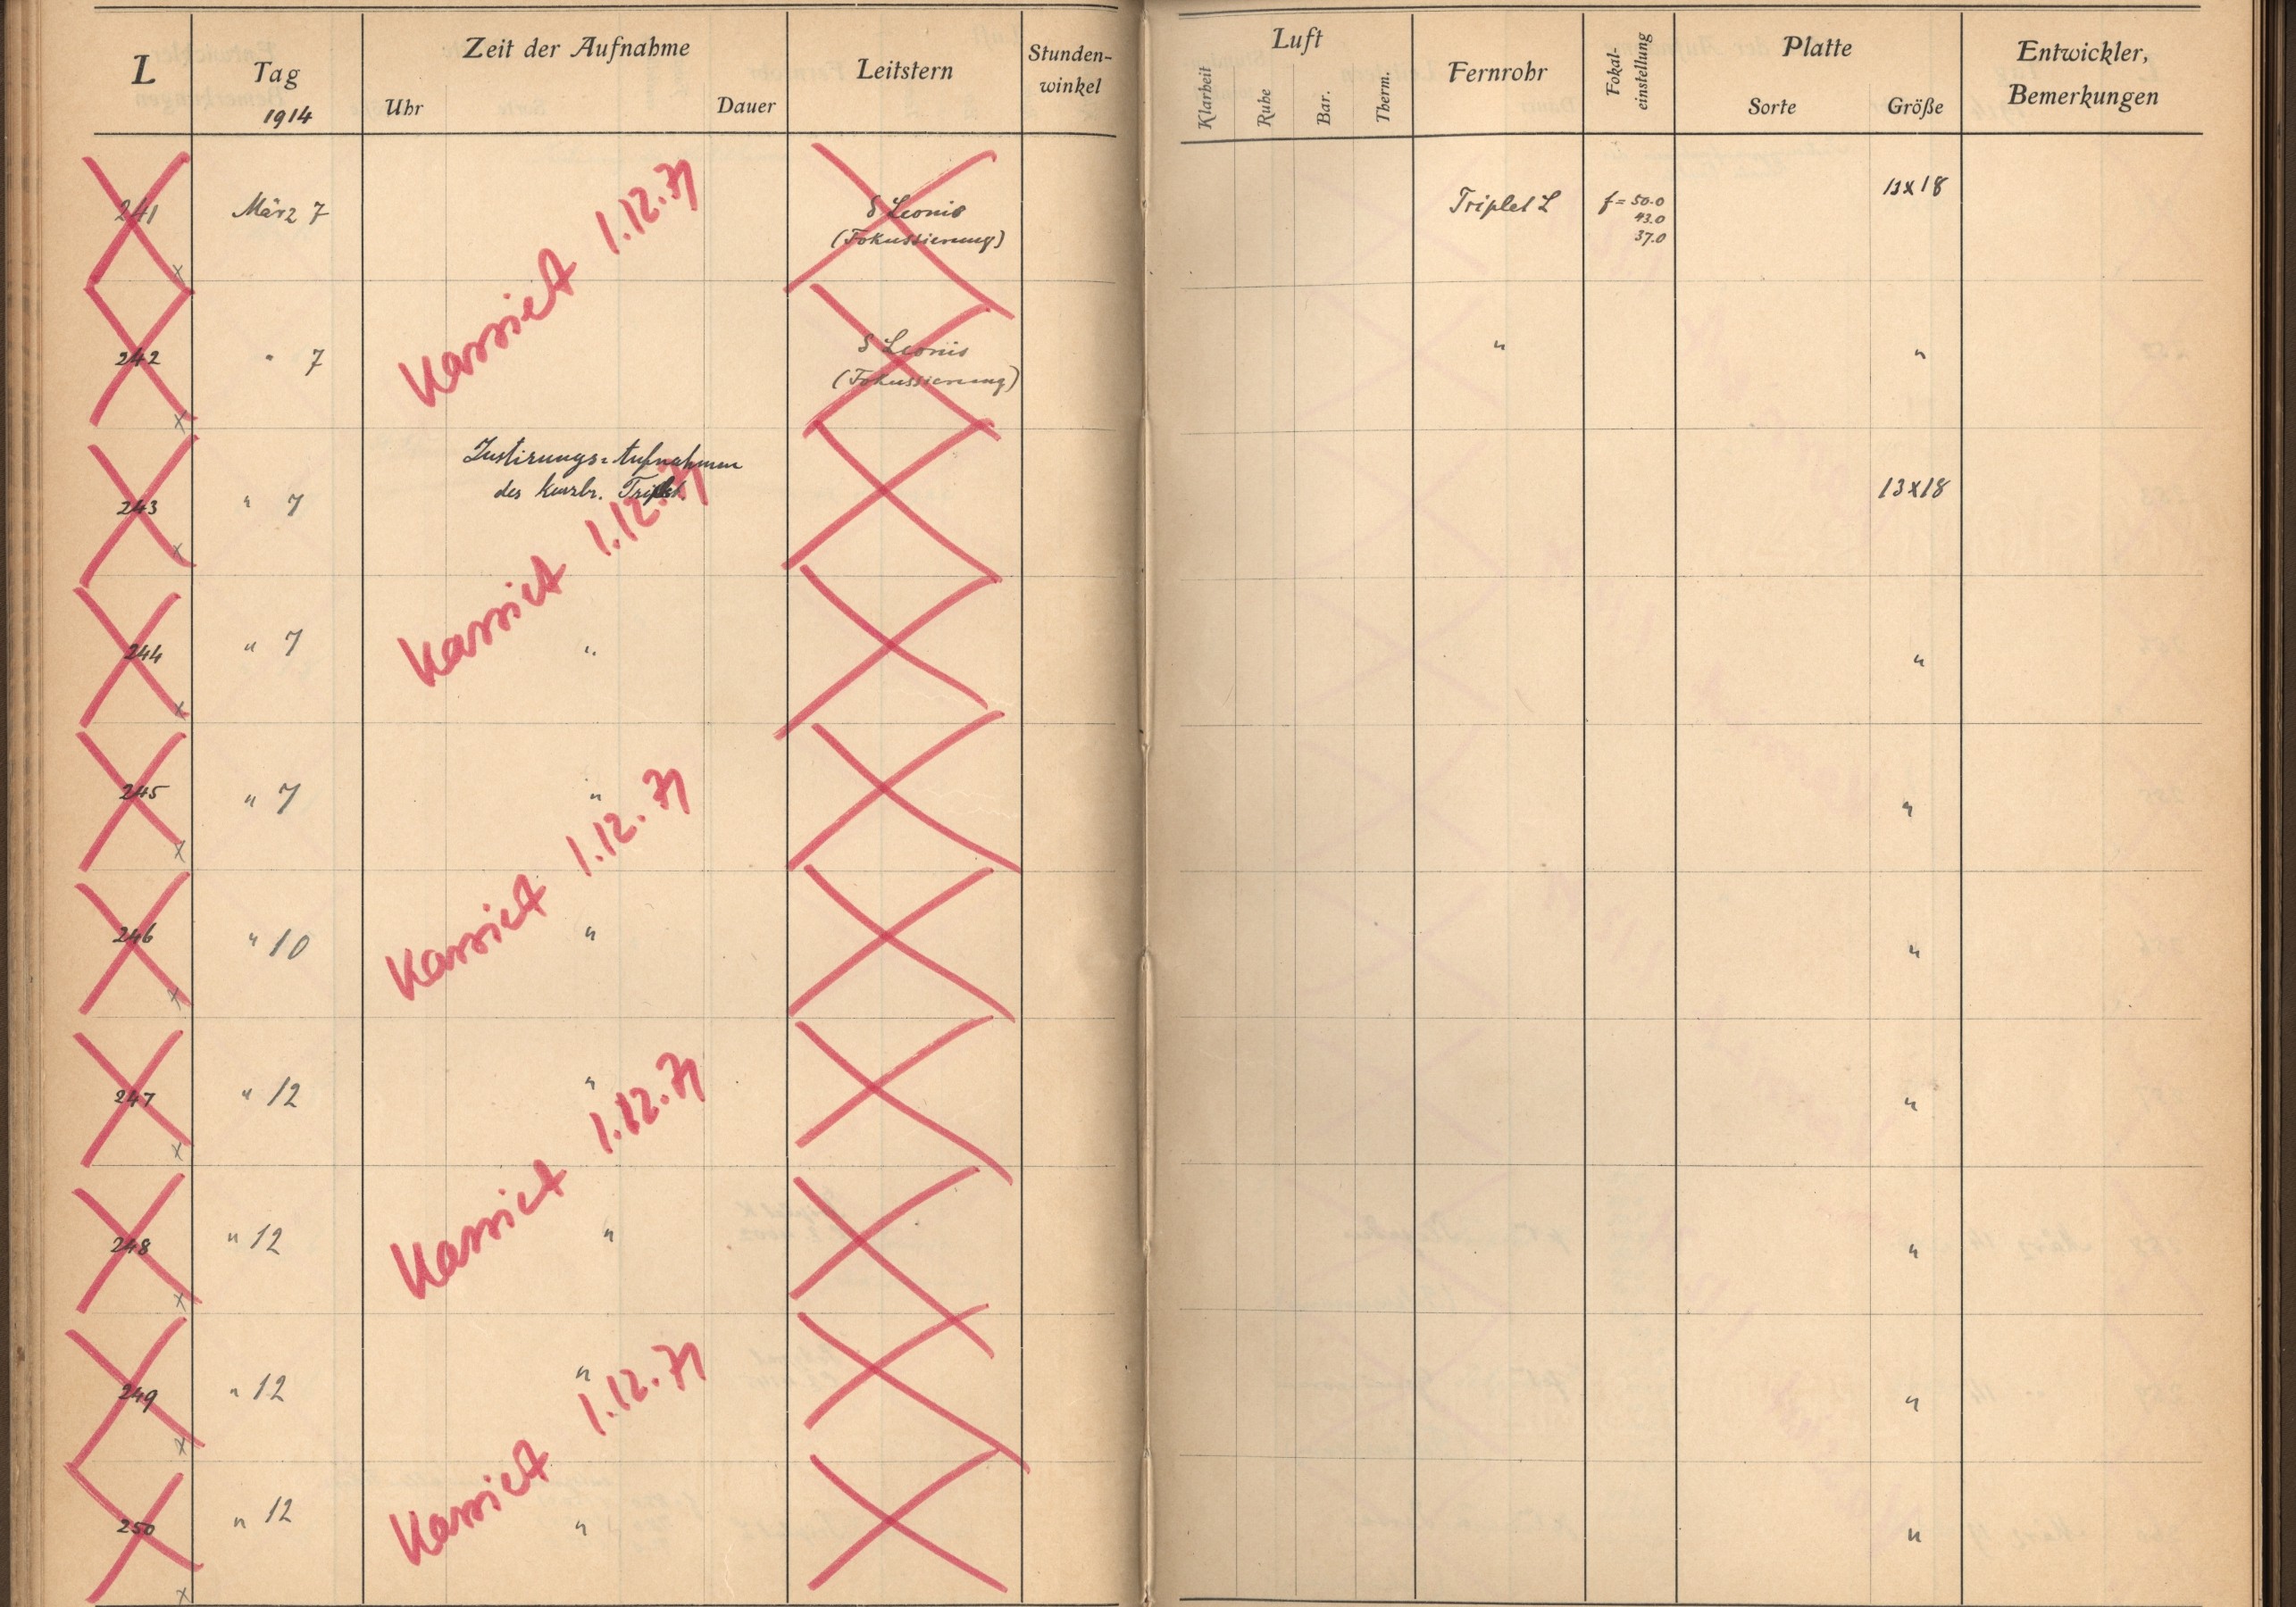 L Tag 1914 Zeit der Aufnahme Uhr Dauer Leitstern Stunden-winkel Luft Klarheit Ruhe Bar. Therm. Fernrohr Fokal-einstellung Platte Sorte Größe Entwickler, Bemerkungen
241 März 7 δ Leonis Triplet L f = 50.0 13x18
(Fokussierung) 43.0
37.0
x
Kassiert 1.12.71
242 " 7 δ Leonis " "
(Fokussierung)
x
Justirungs-Aufnahmen
243 " 7 des kurzbr. Triplet 13x18
x
Kassiert 1.12.71
244 " 7 " "
x
245 " 7 " "
x
Kassiert 1.12.71
246 " 10 " "
x
247 " 12 " "
x
Kassiert 1.12.71
248 " 12 " "
x
249 " 12 " "
x
Kassiert 1.12.71
250 " 12 " "
x